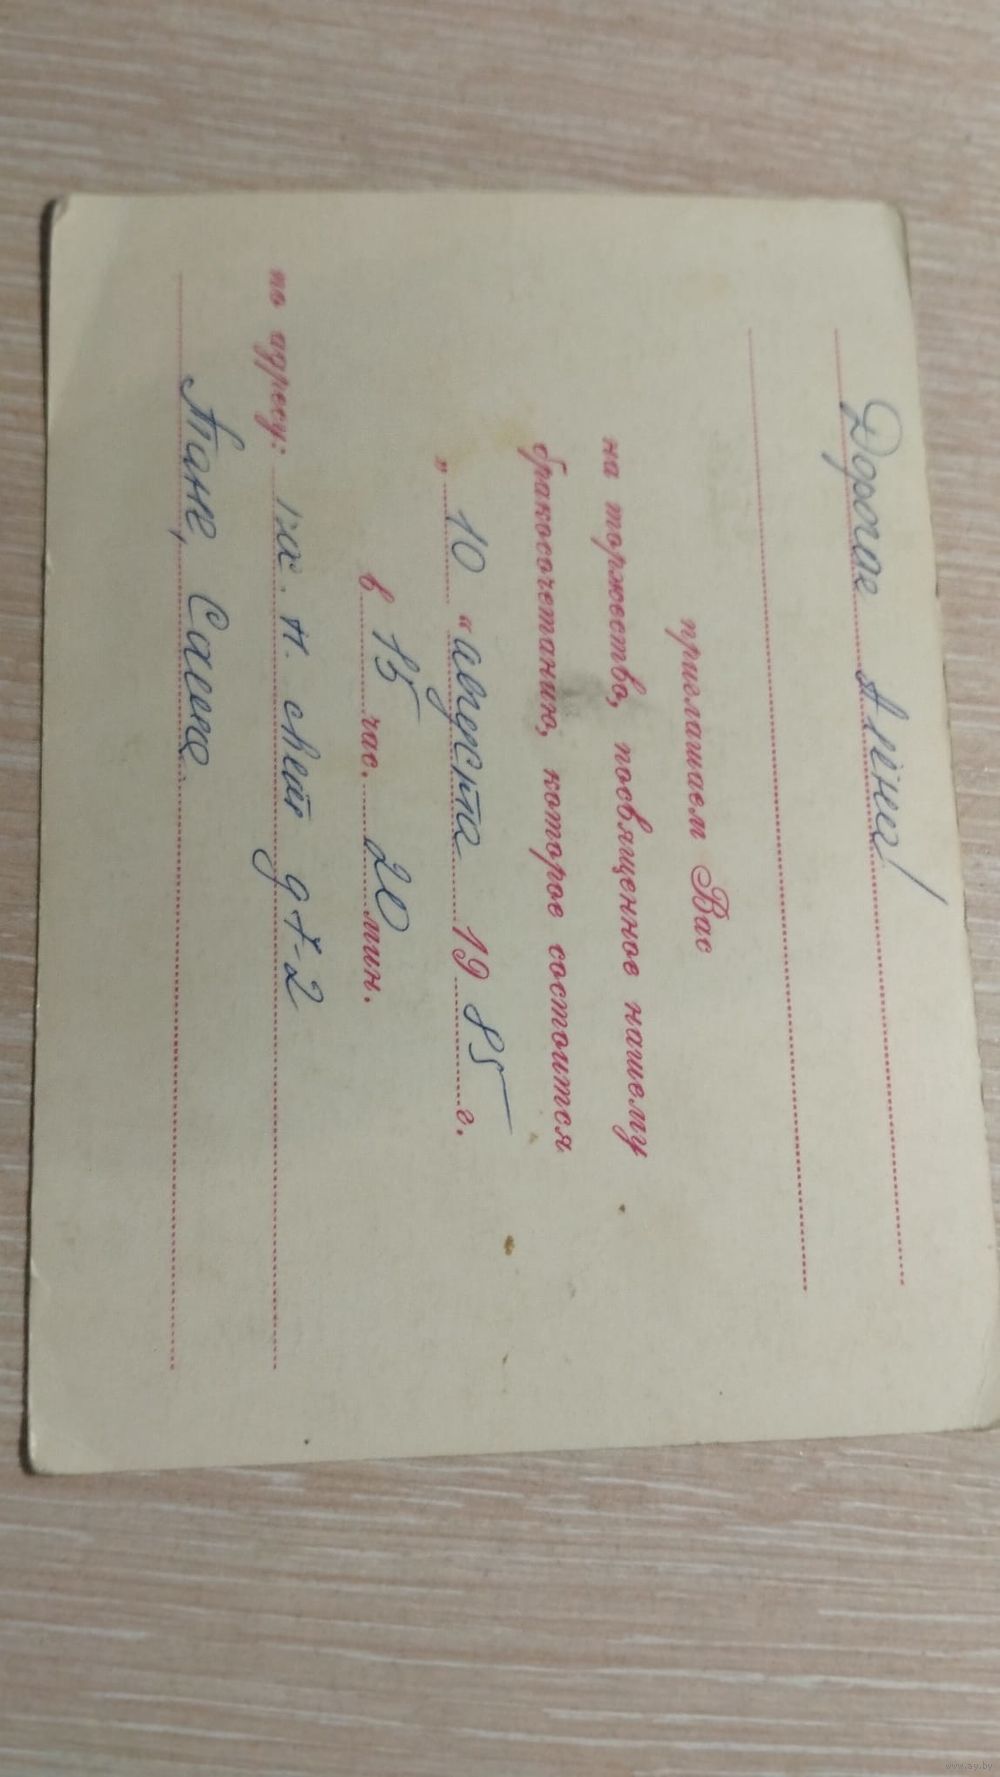 Дорогая Алёна!
приглашаем Вас
на торжество, посвященное нашему
бракосочетанию, которое состоится
„ 10 “ августа 19 85 г.
в 15 час. 20 мин.
по адресу: п. д 7-2
Таня, Саша.
www.ay.by